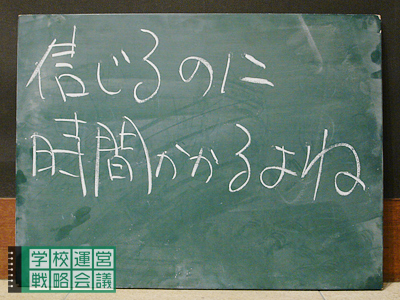 信じるのに
時間かかるよね
学校運営
戦略会議